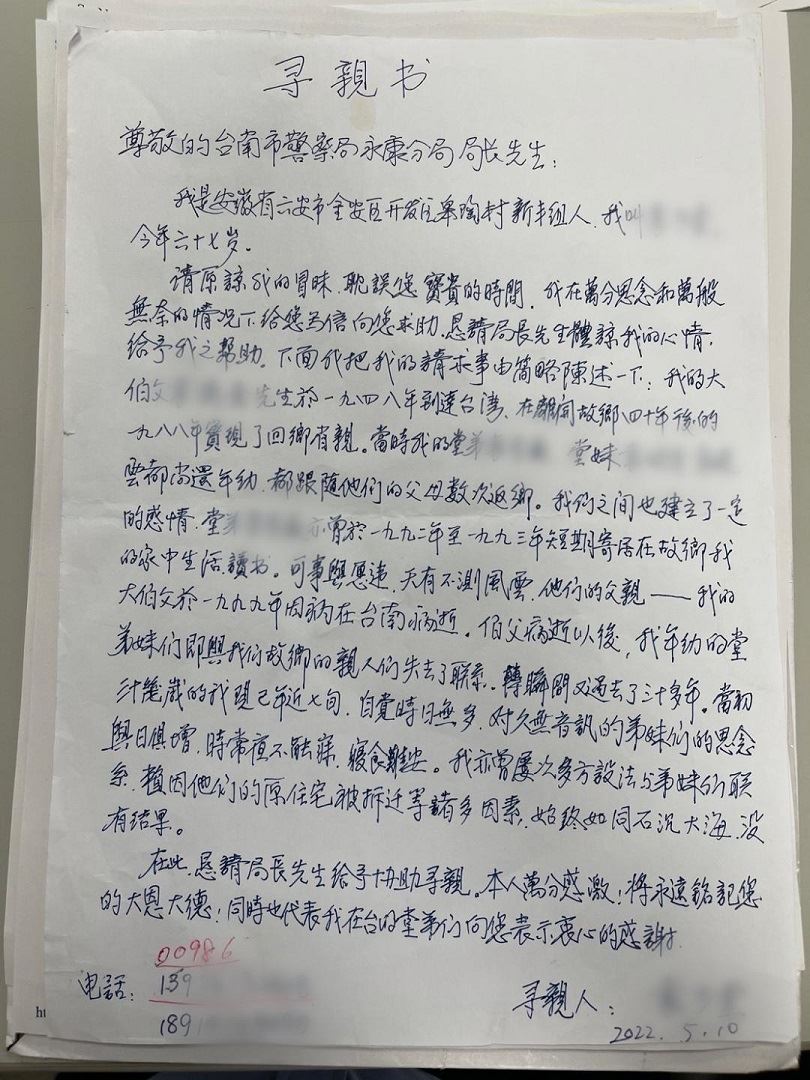 寻親书
尊敬的台南市警察局永康分局局长先生：
我是安徽省六安市金安区开发区皋陶村新丰组人，我叫
今年六十七岁。
请原諒我的冒昧，耽誤您寶貴的時間，我在萬分思念和萬般
無奈的情况下给您写信向您求助，恳請局長先生體諒我的心情，
给予我之幫助。下面我把我的請求事由简略陳述一下：我的大
伯父 先生於一九四八年到達台湾，在離開故鄉四十年後的
一九八八年實現了回鄉省親。當時我的堂弟 堂妹
雲都尚還年幼，都跟随他们的父母数次返鄉。我们之间也建立了一定
的感情，堂弟 亦曾於一九九二年至一九九三年短期寄居在故鄉我
的家中生活讀书。可事與愿违，天有不測風雲，他们的父親——我的
大伯父於一九九九年因病在台南病逝。伯父病逝以後，我年幼的堂
弟妹们即與我们故鄉的親人们失去了联系。轉瞬間又過去了三十多年。當初
三十幾歲的我現已年近七旬，自覺時日無多，对久無音訊的弟妹们的思念
與日俱增，時常夜不能寐，寢食難安。我亦曾屡次多方設法与弟妹们联
系，積因他们的原住宅被拆迁等諸多因素，始终如同石沉大海，没
有结果。
在此，恳請局長先生给予协助寻親。本人萬分感激！將永遠銘記您
的大恩大德！同時也代表我在台的堂弟们向您表示衷心的感謝。
00986
电話：139
189
寻親人：
2022.5.10
ht